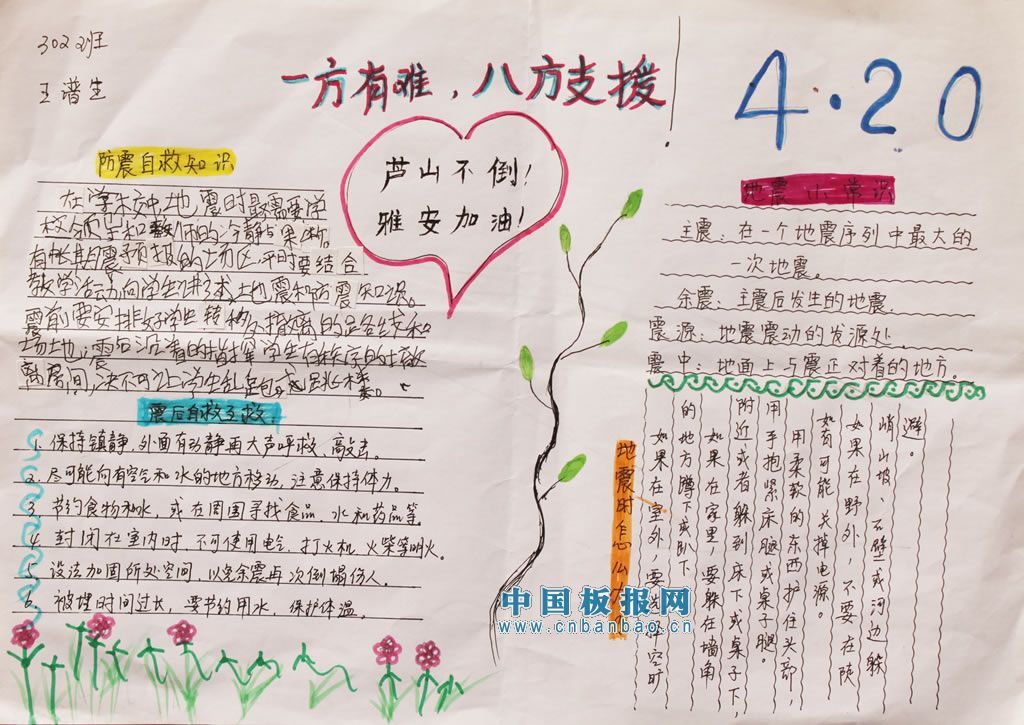 302班
王潽生
一方有难，八方支援
4·20
芦山不倒！
雅安加油！
防震自救知识
在学校中地震时最需要学
有长期震预报的场区，平时要结合
教学活动向学生讲述地震和防震知识。
震前要安排好学生转移、撤离的路线和
场地；震后沉着的指挥学生有秩序的撤
离房间，决不可让学生乱跑或跳楼。
震后自救互救
1、保持镇静，外面有动静再大声呼救、高敲击。
2、尽可能向有空气和水的地方移动，注意保持体力。
3、节约食物和水，或在周围寻找食品、水和药品等。
4、封闭在室内时，不可使用电气、打火机、火柴等明火。
5、设法加固所处空间，以免余震再次倒塌伤人。
6、被埋时间过长，要节约用水，保护体温。
地震小常识
主震：在一个地震序列中最大的
一次地震。
余震：主震后发生的地震
震源：地震震动的发源处
震中：地面上与震正对着的地方。
地震时怎么
如果在室外，要 空旷
的地方蹲下或趴下
如果在家里，要躲在墙角
附近或者躲到床下或桌子下，
用手抱紧床腿或桌子腿。
用柔软的东西护住头部，
如有可能，关掉电源。
如果在野外，不要在陡
峭山坡、石壁或河边躲
避。
中国板报网
www.cnbanbao.cn